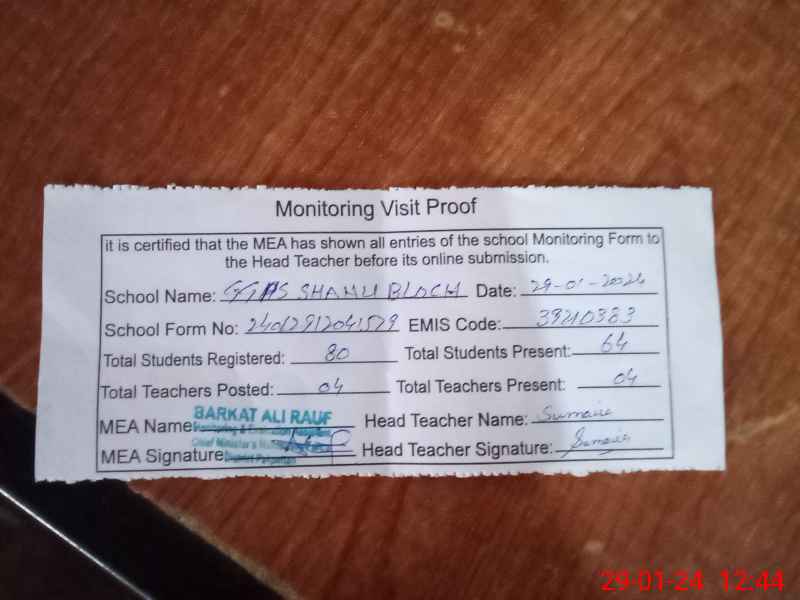 Monitoring Visit Proof
it is certified that the MEA has shown all entries of the school Monitoring Form to
the Head Teacher before its online submission.
School Name: GGPS SHAHU BLOCH Date: 29-01-2024
School Form No: 24012912041529 EMIS Code: 39210383
Total Students Registered: 80 Total Students Present: 64
Total Teachers Posted: 04 Total Teachers Present: 04
MEA Name BARKAT ALI RAUF Head Teacher Name: Sumaira
Monitoring &
Chief Minister's
MEA Signature Head Teacher Signature: Sumaira
District
29-01-24 12:44